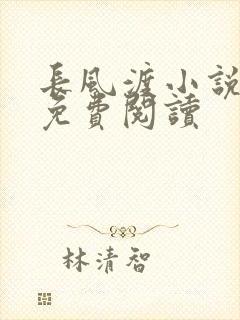 長風渡小說
免費閱讀
林清智